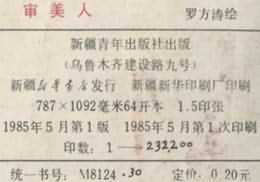 审美人 罗方涛绘
新疆青年出版社出版
(乌鲁木齐建设路九号)
新疆新华书店发行 新疆新华印刷厂印刷
787×1092毫米64开本 1.5印张
1985年5月第1版 1985年5月第1次印刷
印数:1——232,200
统一书号:M8124·30 定价:0.20元